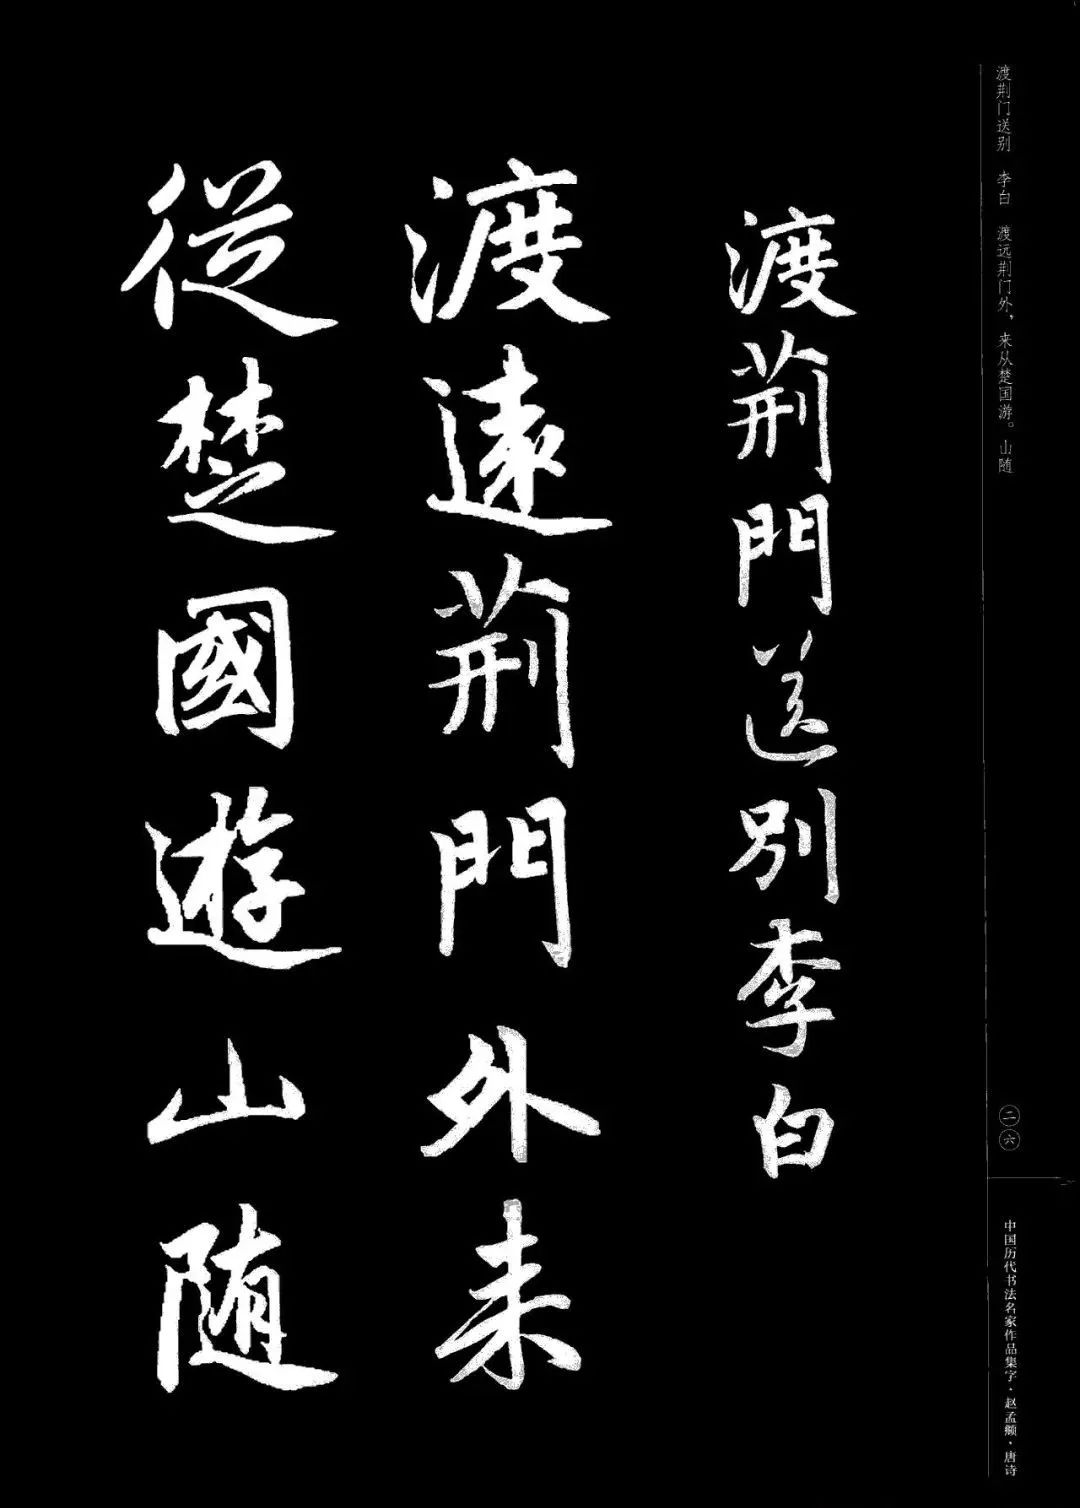 渡荆门送别 李白 渡远荆门外，来从楚国游。山随
渡荊門送別李白
渡遠荊門外来
從楚國遊山随
二六
中国历代书法名家作品集字·赵孟頫·唐诗